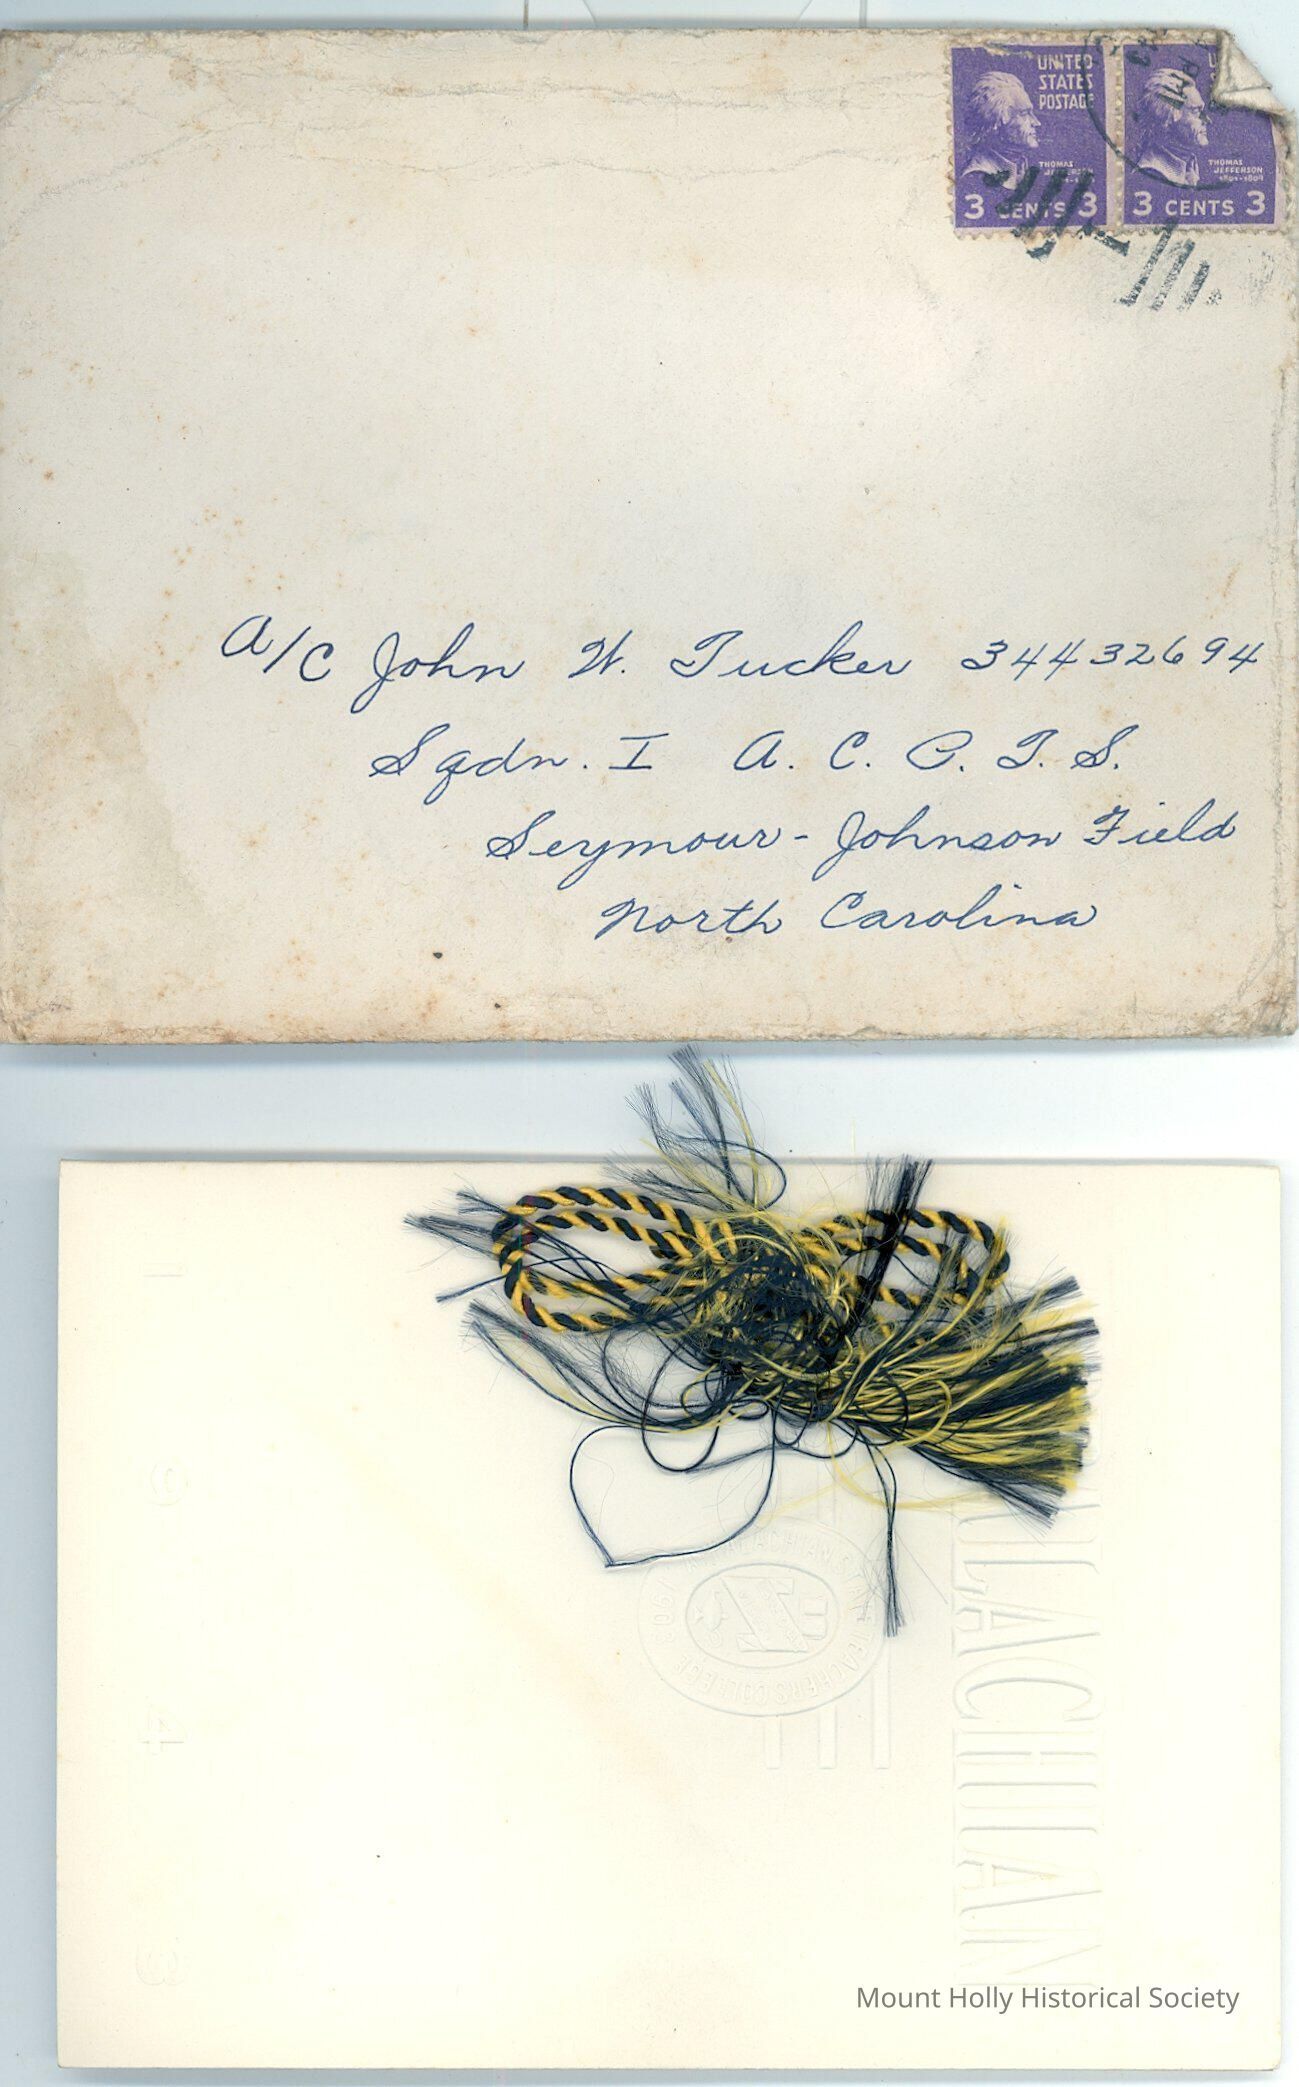 UNITED
STATES
POSTAGE
THOMAS
JEFFERSON
3 CENTS 3
THOMAS
JEFFERSON
1801-1809
3 CENTS 3
A/C John W. Tucker 34432694
Sqdn. I A. C. C. T. S.
Seymour-Johnson Field
North Carolina
1
9
4
3
APPALACHIAN STATE TEACHERS COLLEGE
1903
APPALACHIAN
Mount Holly Historical Society